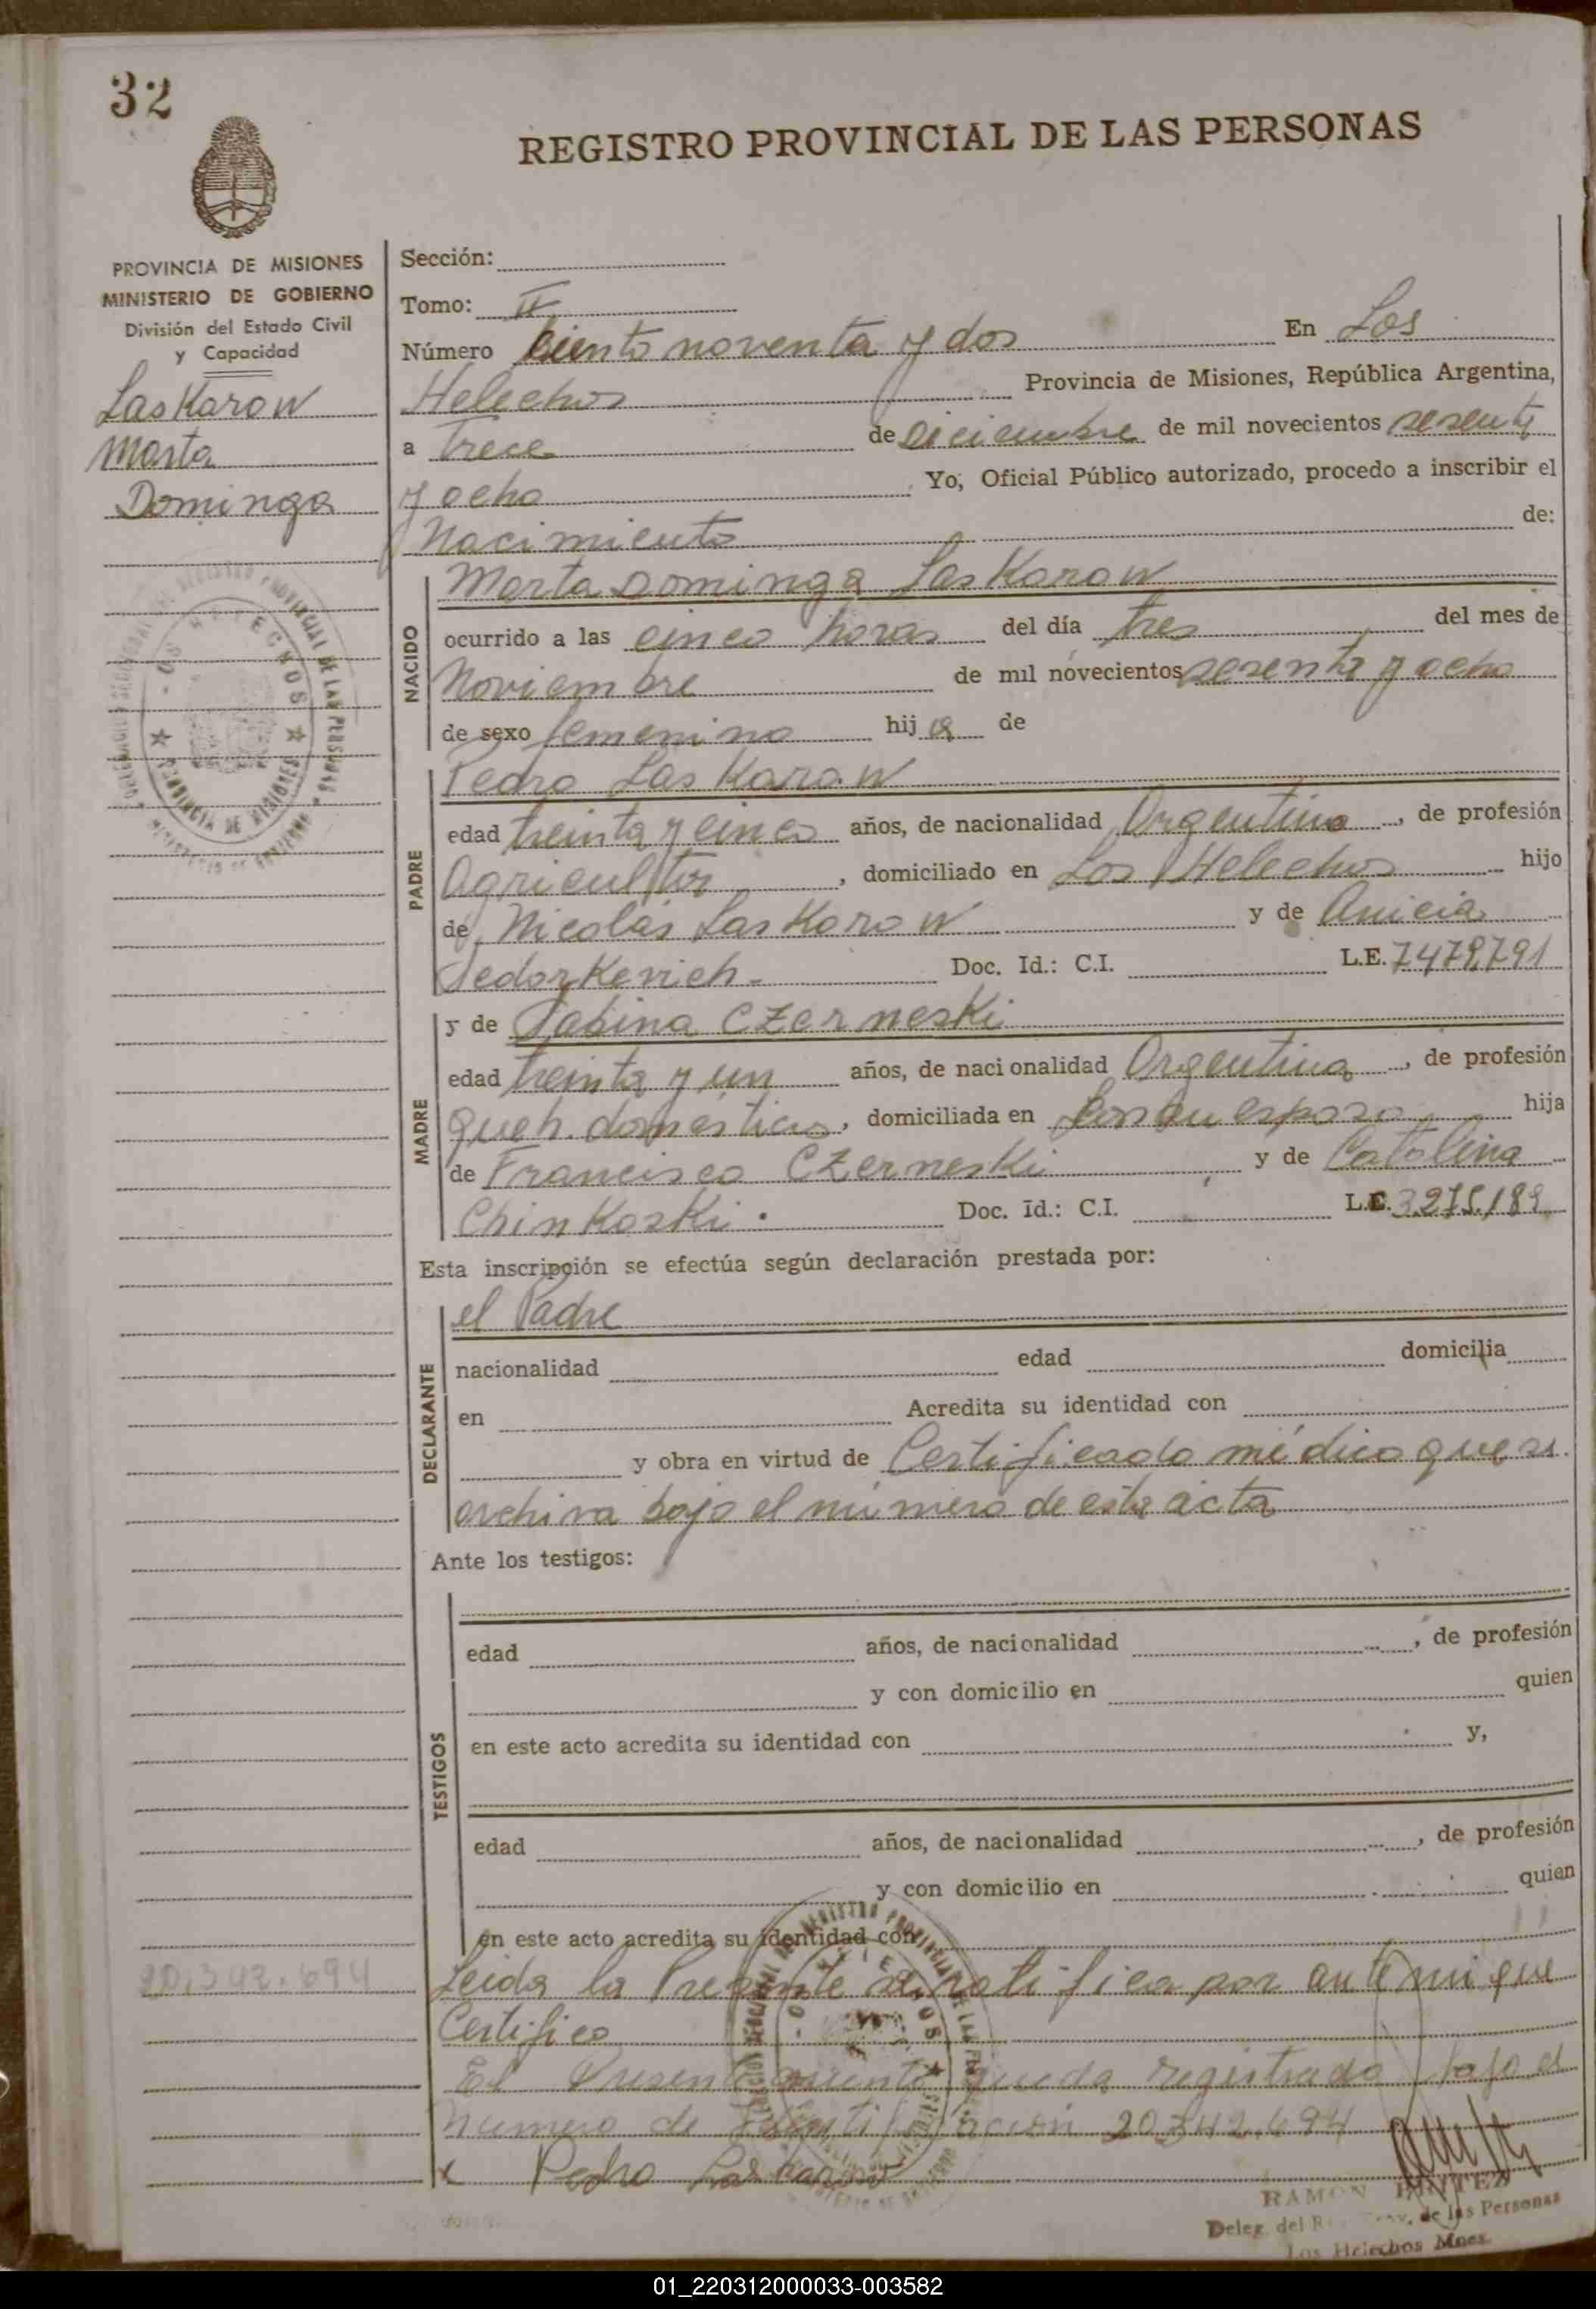 32
REGISTRO PROVINCIAL DE LAS PERSONAS
PROVINCIA DE MISIONES
MINISTERIO DE GOBIERNO
División del Estado Civil
y Capacidad
Laskarow
Marta
Dominga
Sección:
Tomo: II
Número Ciento noventa y dos En Los
Helechos Provincia de Misiones, República Argentina,
a trece de Diciembre de mil novecientos sesenta
y ocho Yo, Oficial Público autorizado, procedo a inscribir el
Nacimiento de:
NACIDO
Marta Dominga Laskarow
ocurrido a las cinco horas del día tres del mes de
Noviembre de mil novecientos sesenta y ocho
de sexo femenino hija de
PADRE
Pedro Laskarow
edad treinta y cinco años, de nacionalidad Argentina, de profesión
Agricultor, domiciliado en Los Helechos hijo
de Nicolás Laskarow y de Anicia
Sedorkevich. Doc. Id.: C.I. L.E. 7479791
MADRE
y de Sabina Czerneski
edad treinta y un años, de nacionalidad Argentina, de profesión
queh. domésticos, domiciliada en con su esposo hija
de Francisco Czerneski y de Catalina
Chinkoski. Doc. Id.: C.I. L.C. 3.275.189
Esta inscripción se efectúa según declaración prestada por:
DECLARANTE
el Padre
nacionalidad edad domicilia
en Acredita su identidad con
y obra en virtud de Certificado médico que se
archiva bajo el número de esta acta
Ante los testigos:
TESTIGOS
edad años, de nacionalidad , de profesión
y con domicilio en quien
en este acto acredita su identidad con y,
edad años, de nacionalidad , de profesión
y con domicilio en quien
en este acto acredita su identidad con
20.342.694
Leida la Presente se ratifica por ante mi que
Certifico
El Presente queda registrado bajo el
Numero de Identificación 20.342.694
x Pedro Laskarow
RAMON
Deleg. del de las Personas
Los Helechos Mnes.
01_220312000033-003582